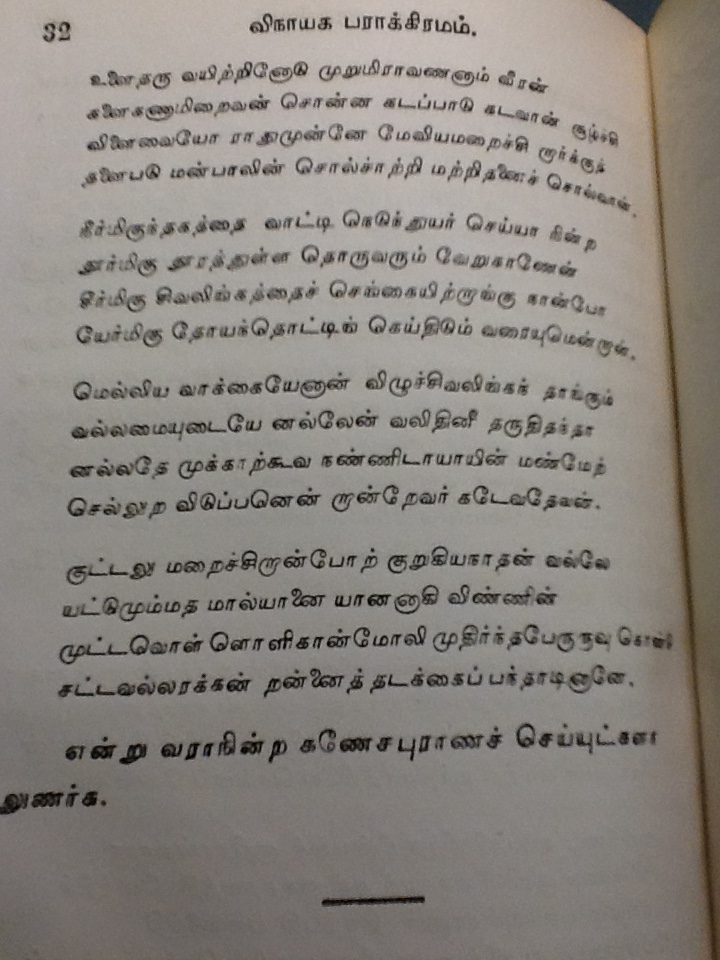 32
விநாயக பராக்கிரமம்.
உளைதரு வயிற்றினோடு முறுமிராவணனும் வீரன்
களைகணுமிறைவன் சொன்ன கடப்பாடு கடவான் சூழ்ச்சி
விளைவையோ ராதுமுன்னே மேவியமறைச்சி றார்க்குத்
தளைபடு மன்பாலின் சொல்சாற்றி மற்றிதனைச் சொல்வான்.
நீர்மிகுந்தகத்தை வாட்டி நெடுந்துயர் செய்யா நின்ற
தூர்மிகு தூரத்துள்ள தொருவரும் வேறுகாணேன்
சீர்மிகு சிவலிங்கத்தைச் செங்கையிற்றாங்கு நான்போ
யேர்மிகு தோயந்தொட்டிங் கெய்திடும் வரையுமென்றான்.
மெல்லிய வாக்கையேனான் விழுச்சிவலிங்கந் தாங்கும்
வல்லமையுடையே னல்லேன் வலிதினீ தருதிதந்தா
னல்லதே முக்காற்கூவ நண்ணிடாயாயின் மண்மேற்
செல்லுற விடுப்பனென் றான்றேவர் கடேவதேவன்.
குட்டனு மறைச்சிறான்போற் குறுகியநாதன் வல்லே
யட்டுமும்மத மால்யானை யானனாகி விண்ணின்
முட்டவொள் ளொளிகான்மோலி முதிர்ந்தபேருருவு கொண்டு
சட்டவல்லரக்கன் றன்னைத் தடக்கைப் பந்தாடினானே.
என்று வராநின்ற கணேசபுராணச் செய்யுட்களா
லுணர்க.